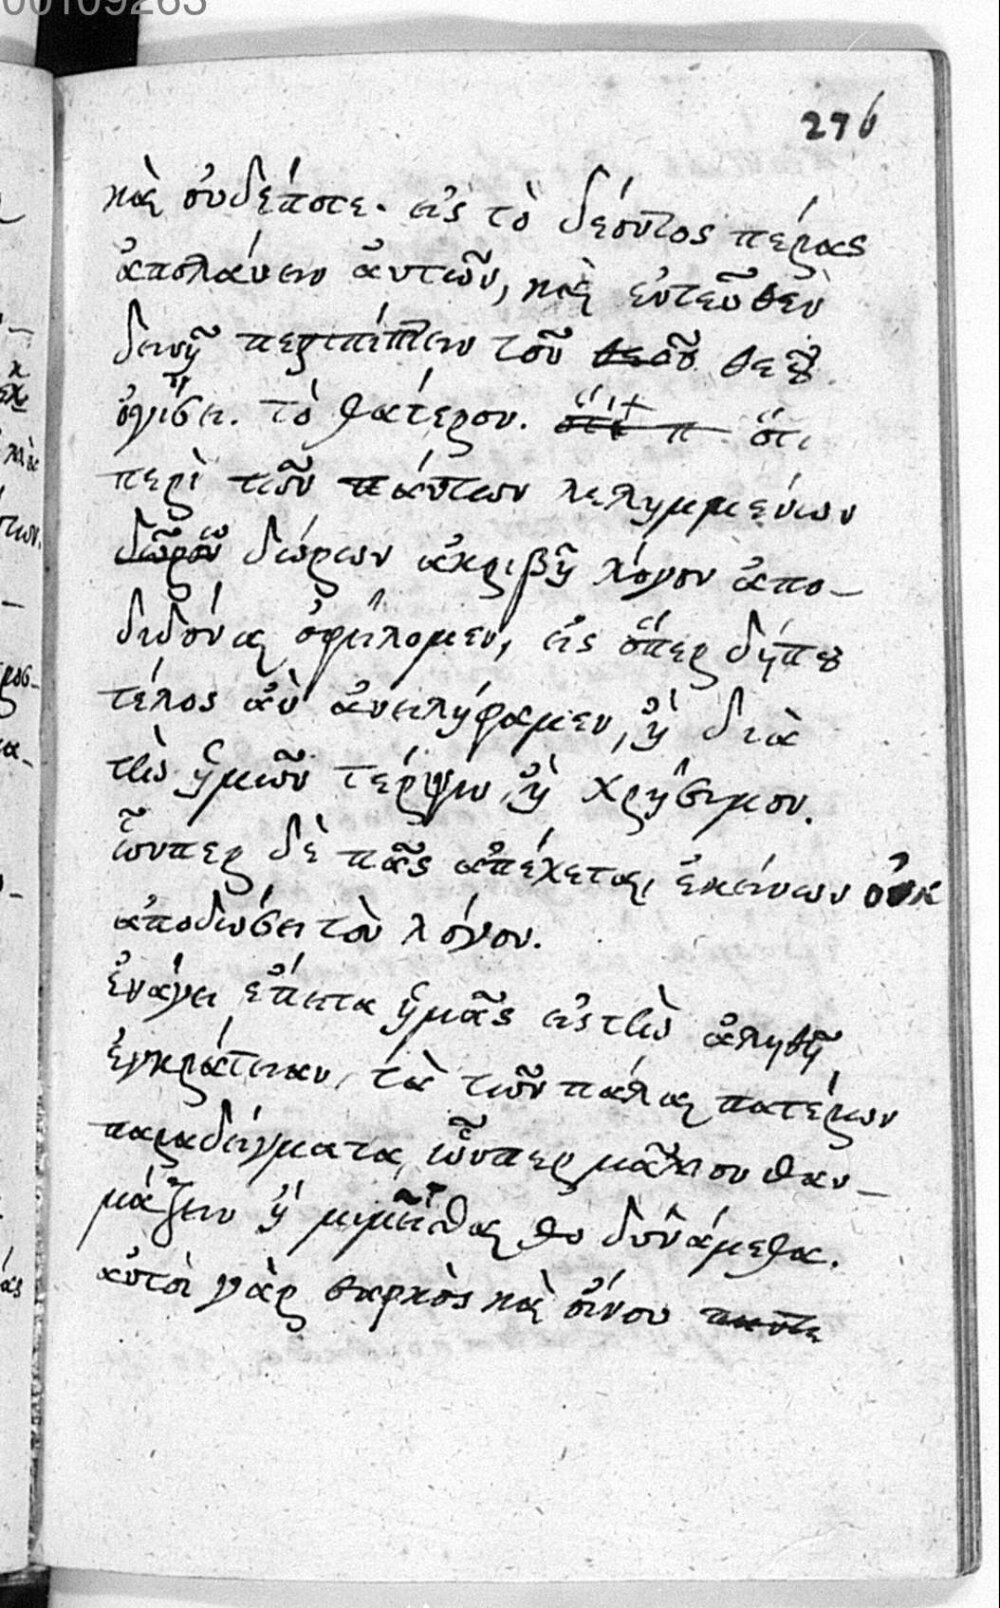 00109263
276
καὶ οὐδέποτε. εἰς τὸ δέοντος πέρας
ἀπολαύειν αὐτῶν, καὶ ἐντεῦθεν
δεινῇ περιπίπτειν τοῦ θεοῦ θεοῦ
ὀργίσει. τὸ θάτερον. ὅτι
περὶ τῶν πάντων λελημμένων
δῶρον δώρων ἀκριβῆ λόγον ἀπο-
διδόναι ὀφείλομεν, εἰς ὅπερ δήπου
τέλος ἂν ἀνειλήφαμεν, ἢ διὰ
τὴν ἡμῶν τέρψιν, ἢ χρήσιμον.
ὧνπερ δὲ πᾶς ἀπέχεται, ἐκείνων οὐκ
ἀποδώσει τὸν λόγον.
ἐνάγει ἔπειτα ἡμᾶς εἰς τὴν ἀληθῆ
ἐγκράτειαν, τὰ τῶν πάλαι πατέρων
παραδείγματα, ὧνπερ μᾶλλον θαυ-
μάζειν ἢ μιμεῖσθαι δυνάμεθα.
αὐτοὶ γὰρ σαρκὸς καὶ οἴνου